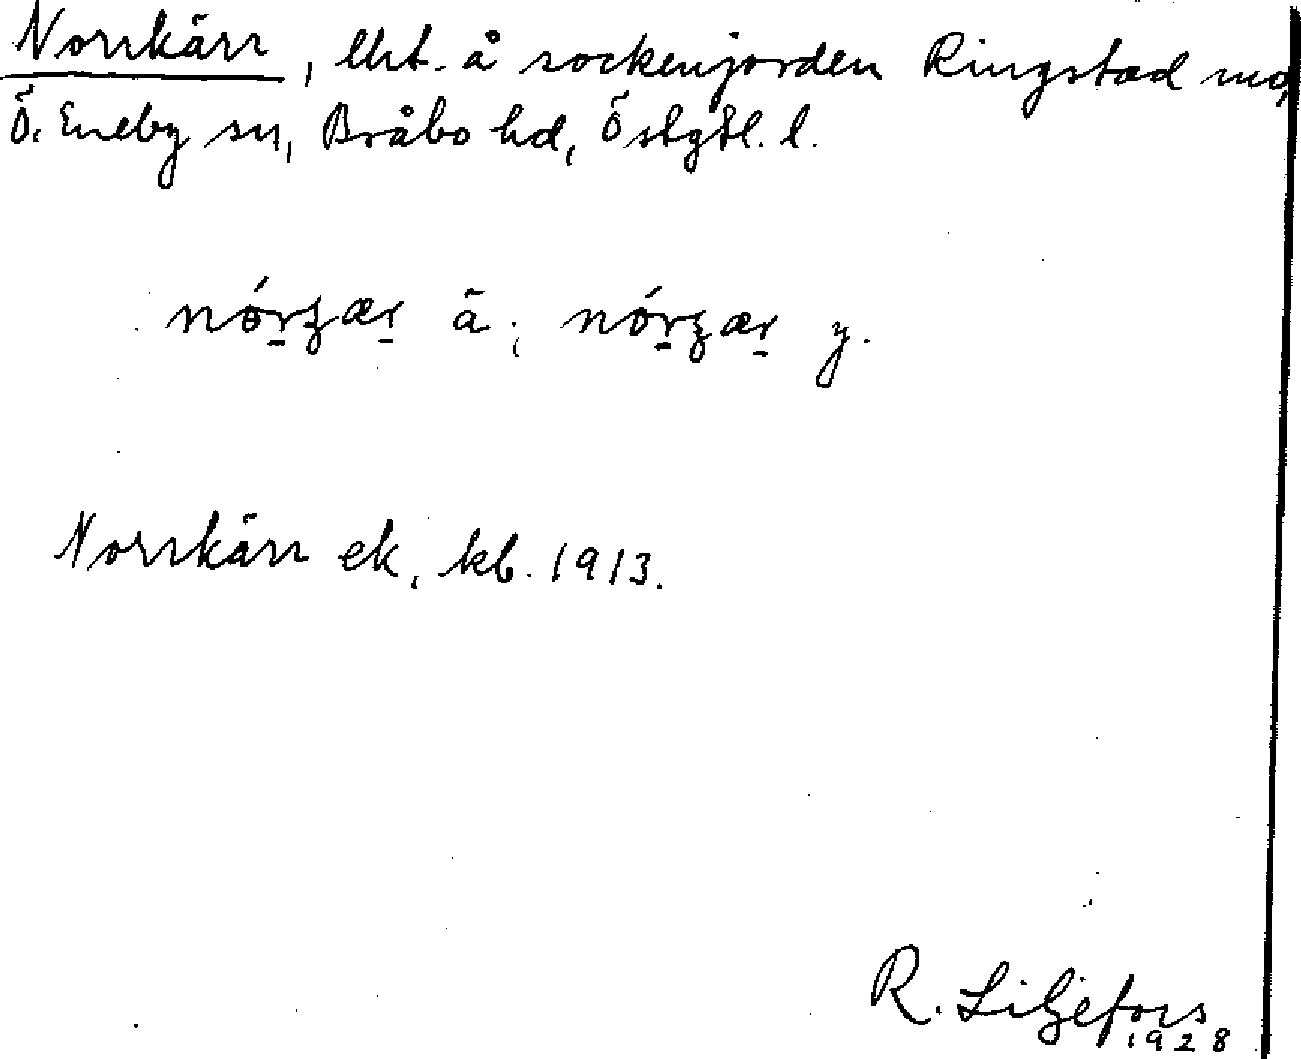 Norrkärr, lht. å sockenjorden Ringstad mo,
Ö. Eneby sn, Bråbo hd, Östgtl. l.
nórʒær ä; nórʒær y.
Norrkärr ek, kb. 1913.
R. Liljefors
1928